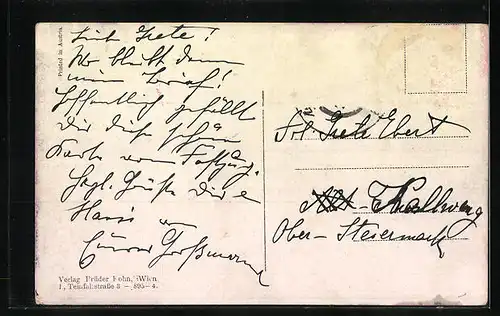 Printed in Austria
Liebe Grete!
Wo bleibt denn
mein Brief!
Hoffentlich gefällt
Dir diese schöne
Karte vom Festzug.
Hzgl. Grüße Dir
Hansi
Frl. Grete Ebert
Thallwang
Ober-Steiermark
Verlag Brüder Kohn, Wien
I., Teinfaltstraße 3 — 895-4.